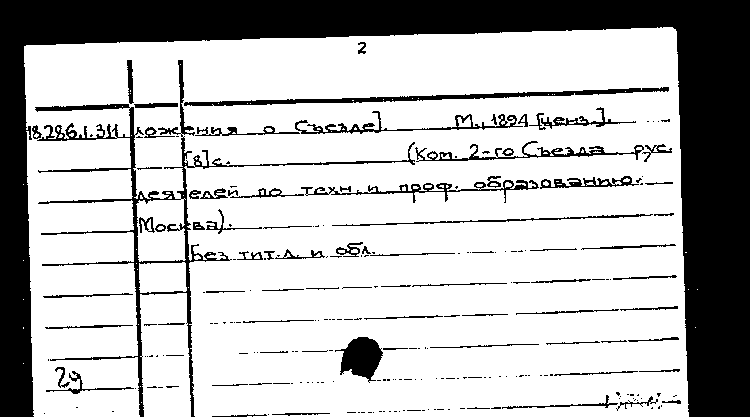 2
18.286.1.311. ложения о Съезде]. М., 1894 [ценз.].
[8]с. (Ком. 2-го Съезда рус.
деятелей по техн. и проф. образованию.
Москва).
Без тит.л. и обл.
29